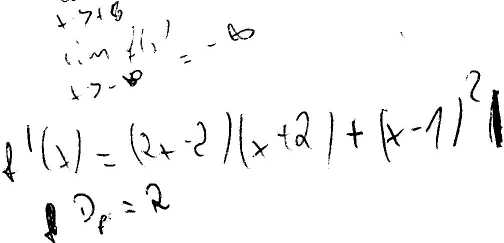 x->+∞
lim f(x) = -∞
x->-∞
f'(x) = (2x-2)(x+2) + (x-1)²
D_f = R